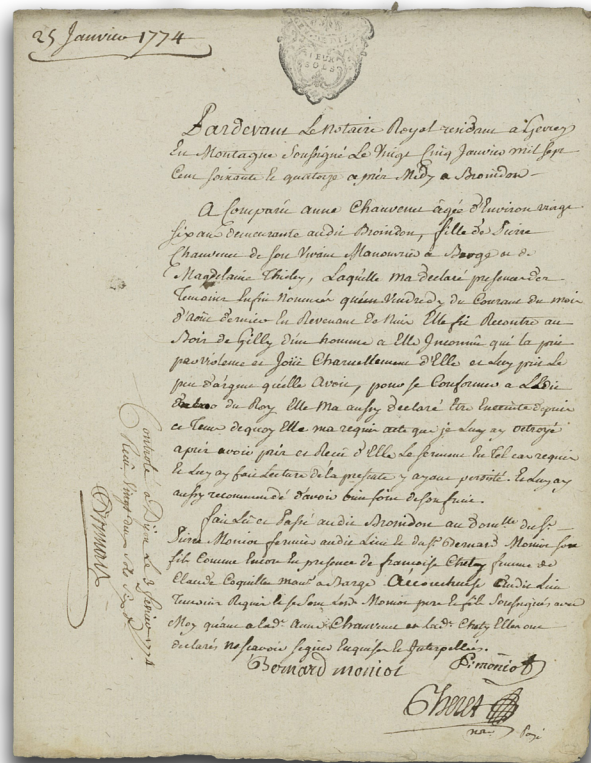 25 Janvier 1774
Pardevant Le Notaire Royal residant a Gevrey
En Montagne Soussigné Le Vingt Cinq Janvier mil sept
Cent soixante et quatorze après Midy a Broindon
A Comparû anne Chauvenet âgée d'Environ vingt
six ans demeurante audit Broindon, fille de
Chauvenet de son Vivant Manouvrier a Barge et de
Magdelaine Thiely, Laquelle ma declaré presence des
Temoins Enfin Nommés qu'en Vendredy du Courant du mois
d'Aoûst dernier En Revenant de Nuit Elle fit Recontre au
Bois de Gilly d'un homme a Elle Inconnû qui la prit
par violence et Joüit Charnellement d'Elle et Luy prit Le
peu d'argent qu'elle avoit, pour se Conformer a Ledit
du Roy Elle Ma aussy declaré Etre Enceinte depuis
ce Tems dequoy Elle ma requis acte que je Luy ay octroyé
après avoir pris et Reçu d'Elle Le serment En tel cas requis
et Luy ay fait Lecture de la presente y ayant persisté. et Luy ay
aussy recommendé d'avoir bien soin de son fruit.
fait Lû et Passé audit Broindon au Domlle du Sr
Moniot fermier audit Lieu et du Sr Bernard Moniot son
fils Comme Encore En presence de françoise femme de
Claude Coquillet manr a Barge audit Lieu
Temoins Requis et se sont Lesd. Moniot pere et fils Soussignés avec
Moy quant a lad. Anne Chauvenet et lad. Elles ont
declarés ne sçavoir signer Enquises et Interpellés.
Bernard moniot
P. moniot
Thoret
Controlé a Dijon Le 3 fevrier 1774
Reçu